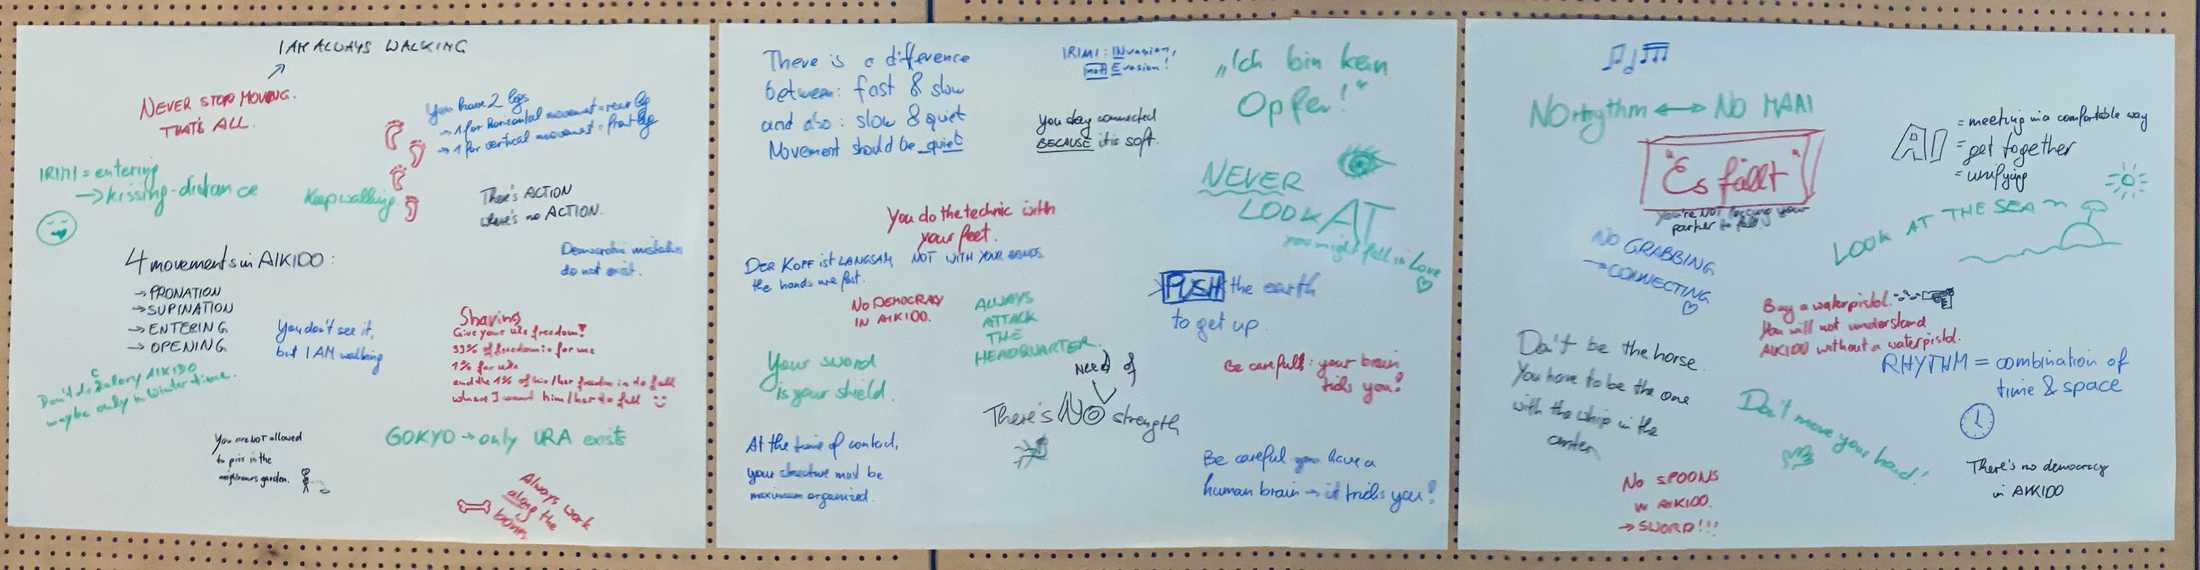 I AM ALWAYS WALKING
NEVER STOP MOVING.
THAT'S ALL.
You have 2 legs
→ 1 for horizontal movement = rear leg
→ 1 for vertical movement = front leg
IRIMI = entering
→ kissing-distance
Keep walking
There's ACTION
where's no ACTION.
4 movements in AIKIDO:
→ PRONATION
→ SUPINATION
→ ENTERING
→ OPENING
Democratic mistakes
do not exist.
You don't see it,
but I AM walking
Sharing
Give your uke freedom!
99% of freedom is for me
1% for uke
and the 1% of his/her freedom is to fall
where I want him/her to fall
Don't do AIKIDO
maybe only in Winter time.
GOKYO → only URA exists
You are not allowed
to piss in the
neighbours garden.
Always work
along the
bones
There is a difference
between: fast & slow
and also: slow & quiet
Movement should be quiet
IRIMI: INvasion,
not Evasion!
You stay connected
BECAUSE it is soft.
"Ich bin kein
Opfer!"
NEVER
LOOK AT
you might fall in Love
You do the technic with
your feet.
NOT WITH YOUR HANDS
DER KOPF IST LANGSAM
the hands are fast.
NO DEMOCRACY
IN AIKIDO.
ALWAYS
ATTACK
THE
HEADQUARTER.
PUSH the earth
to get up.
Your sword
is your shield.
Need of
There's NO strength
Be carefull: your brain
tricks you!
At the time of contact,
your structure must be
maximum organized.
Be careful you have a
human brain → it tricks you!
No rhythm ↔ No MAAI
"Es fällt"
you're NOT forcing your
partner to fall
AI = meeting in a comfortable way
= get together
= unifying
NO GRABBING
→ CONNECTING
LOOK AT THE SEA
Buy a waterpistol.
You will not understand
AIKIDO without a waterpistol.
Don't be the horse.
You have to be the one
with the whip in the
center.
RHYTHM = combination of
time & space
Don't move your hand!
No SPOONS
IN AIKIDO.
→ SWORD!!!
There's no democracy
in AIKIDO